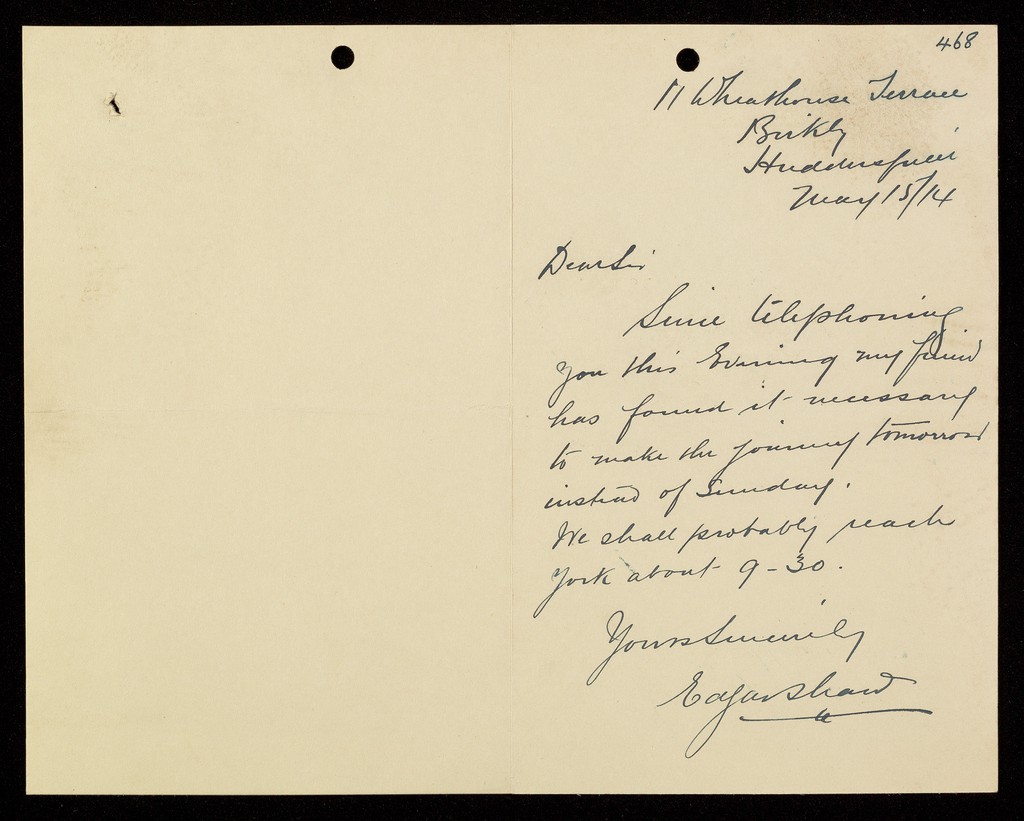 468
11 Wheathouse Terrace
Birkby
Huddersfield
May 15/14
Dear Sir
Since telephoning
you this Evening my friend
has found it necessary
to make the journey tomorrow
instead of Sunday.
We shall probably reach
York about 9-30.
Yours Sincerely
Edgar Shaw